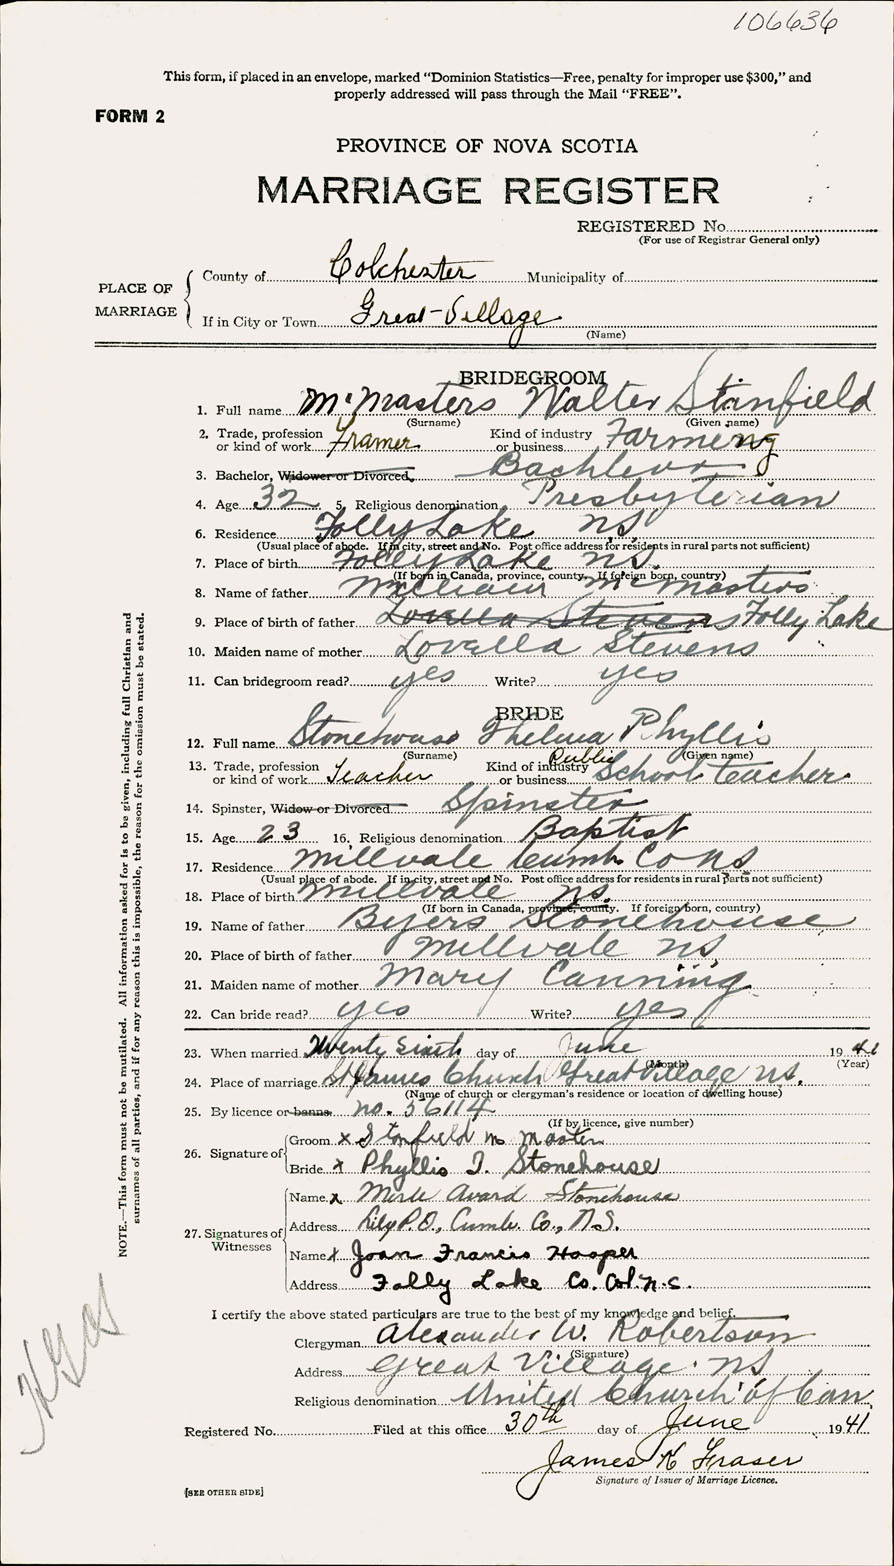 106636
This form, if placed in an envelope, marked “Dominion Statistics—Free, penalty for improper use $300,” and
properly addressed will pass through the Mail “FREE”.
FORM 2
PROVINCE OF NOVA SCOTIA
MARRIAGE REGISTER
REGISTERED No.
(For use of Registrar General only)
PLACE OF MARRIAGE
County of Colchester Municipality of
If in City or Town Great-Village
(Name)
BRIDEGROOM
1. Full name McMasters Walter Stanfield
(Surname) (Given name)
2. Trade, profession or kind of work Framer Kind of industry or business Farmeng
3. Bachelor, Widower or Divorced. Bachlevor
4. Age 32 5. Religious denomination Presbyterian
6. Residence Folly Lake NS
(Usual place of abode. If in city, street and No. Post office address for residents in rural parts not sufficient)
7. Place of birth Folly Lake NS.
(If born in Canada, province, county. If foreign born, country)
8. Name of father William McMasters
9. Place of birth of father Lovella Stevens Folly Lake
10. Maiden name of mother Lovella Stevens
11. Can bridegroom read? yes Write? yes
BRIDE
12. Full name Stonehouse Thelma Phyllis
(Surname) (Given name)
13. Trade, profession or kind of work Teacher Kind of industry or business Public School teacher
14. Spinster, Widow or Divorced Spinster
15. Age 23 16. Religious denomination Baptist
17. Residence Millvale Cumb. Co NS
(Usual place of abode. If in city, street and No. Post office address for residents in rural parts not sufficient)
18. Place of birth Millvale NS.
(If born in Canada, province, county. If foreign born, country)
19. Name of father Byers Stonehouse
20. Place of birth of father Millvale NS
21. Maiden name of mother Mary Canning
22. Can bride read? yes Write? yes
23. When married Twenty Sixth day of June 1941
(Month) (Year)
24. Place of marriage St James Church Great Village NS.
(Name of church or clergyman's residence or location of dwelling house)
25. By licence or banns no. 56114
(If by licence, give number)
26. Signature of
Groom x Stanfield Mc Master
Bride x Phyllis T. Stonehouse
27. Signatures of Witnesses
Name x Merle Avard Stonehouse
Address Lily P.O., Cumb. Co., N.S.
Name x Joan Francis Hooper
Address Folly Lake Co. Col. N.S.
I certify the above stated particulars are true to the best of my knowledge and belief.
Clergyman Alexander W. Robertson
(Signature)
Address Great Village. NS
Religious denomination United Church of Can
Registered No. Filed at this office 30th day of June 1941
James K Fraser
Signature of Issuer of Marriage Licence.
[SEE OTHER SIDE]
NOTE.—This form must not be mutilated. All information asked for is to be given, including full Christian and
surnames of all parties, and if for any reason this is impossible, the reason for the omission must be stated.